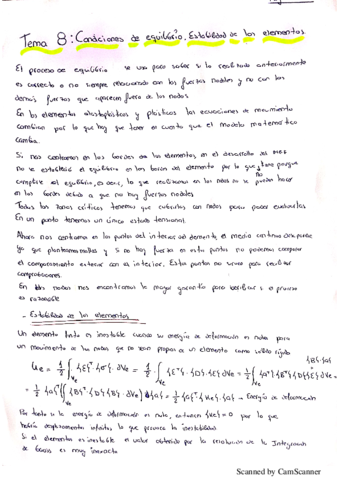 Tema 8: Condiciones de equilibrio. Estabilidad de los elementos
El proceso de equilibrio se usa para saber si lo realizado anteriormente
es correcto o no siempre relacionado con las fuerzas nodales y no con las
demás fuerzas que aparecen fuera de los nodos
En los elementos elastoplásticos y plásticos las ecuaciones de movimiento
cambian por lo que hay que tener en cuenta que el modelo matemático
cambia.
Si nos centramos en los bordes de los elementos en el desarrollo del MEF
no se establece el equilibrio en los bordes del elemento por lo que no tiene porque
cumplirse el equilibrio, es decir, lo que realizamos en los nodos no se puede hacer
en los bordes debido a que no hay fuerzas nodales
Todas las zonas críticas tenemos que cubrirlas con nodos para poder evaluarlas
En un punto tenemos un único estado tensional.
Ahora nos centramos en los puntos del interior del elemento, el medio continuo
lo que planteamos nodales y si no hay fuerza en estos puntos no podemos comparar
el comportamiento exterior con el interior. Estos puntos no sirven para realizar
comprobaciones.
En los nodos nos encontramos la mayor garantía para verificar si el proceso
es razonable
- Estabilidad de los elementos
Un elemento finito es inestable cuando su energía de deformación es nula para
un movimiento de los nodos que no sean propios de un elemento como sólido rígido
{B}·{a}
Ue = 1/2 ∫Ve {ε}ᵀ·{σ}·dVe = 1/2 ∫Ve {ε}ᵀ·{D}·{ε}·dVe = 1/2 ∫Ve {a}ᵀ{B}ᵀ{D}{ε}dVe =
= 1/2 {a}ᵀ ∫Ve {B}ᵀ·{D}·{B}·dVe {a} = 1/2 {a}ᵀ·{Ke}·{a} → Energía de deformación
Por tanto si la energía de deformación es nula, entonces {Ke}=0 por lo que
habrá desplazamiento infinito, lo que provoca la inestabilidad.
Si el elemento es inestable el valor obtenido por la resolución de la Integración
de Gauss es muy inexacto
Scanned by CamScanner